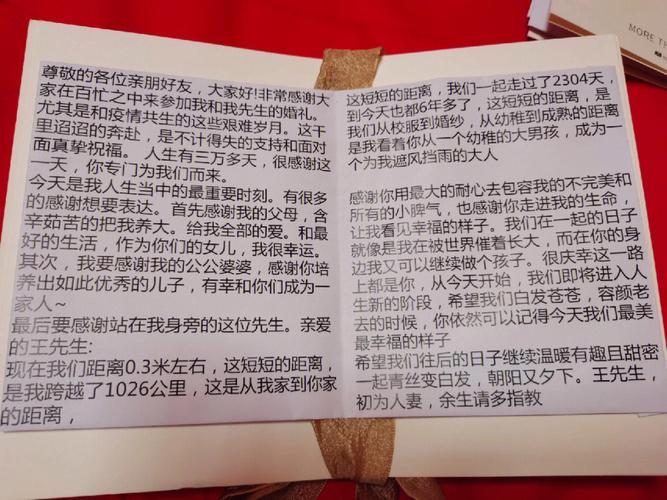 尊敬的各位亲朋好友，大家好!非常感谢大
家在百忙之中来参加我和我先生的婚礼。
尤其是和疫情共生的这些艰难岁月。这千
里迢迢的奔赴，是不计得失的支持和面对
面真挚祝福。 人生有三万多天，很感谢这
一天，你专门为我们而来。
今天是我人生当中的最重要时刻。有很多
的感谢想要表达。首先感谢我的父母，含
辛茹苦的把我养大。给我全部的爱。和最
好的生活，作为你们的女儿，我很幸运。
其次，我要感谢我的公公婆婆，感谢你培
养出如此优秀的儿子，有幸和你们成为一
家人~
最后要感谢站在我身旁的这位先生。亲爱
的王先生:
现在我们距离0.3米左右，这短短的距离，
是我跨越了1026公里，这是从我家到你家
的距离，
这短短的距离，我们一起走过了2304天，
到今天也都6年多了，这短短的距离，是
我们从校服到婚纱，从幼稚到成熟的距离
是我看着你从一个幼稚的大男孩，成为一
个为我遮风挡雨的大人
感谢你用最大的耐心去包容我的不完美和
所有的小脾气，也感谢你走进我的生命，
让我看见幸福的样子。我们在一起的日子
就像是我在被世界催着长大，而在你的身
边我又可以继续做个孩子。很庆幸这一路
上都是你，从今天开始，我们即将进入人
生新的阶段，希望我们白发苍苍，容颜老
去的时候，你依然可以记得今天我们最美
最幸福的样子
希望我们往后的日子继续温暖有趣且甜密
一起青丝变白发，朝阳又夕下。王先生，
初为人妻，余生请多指教
MORE TH